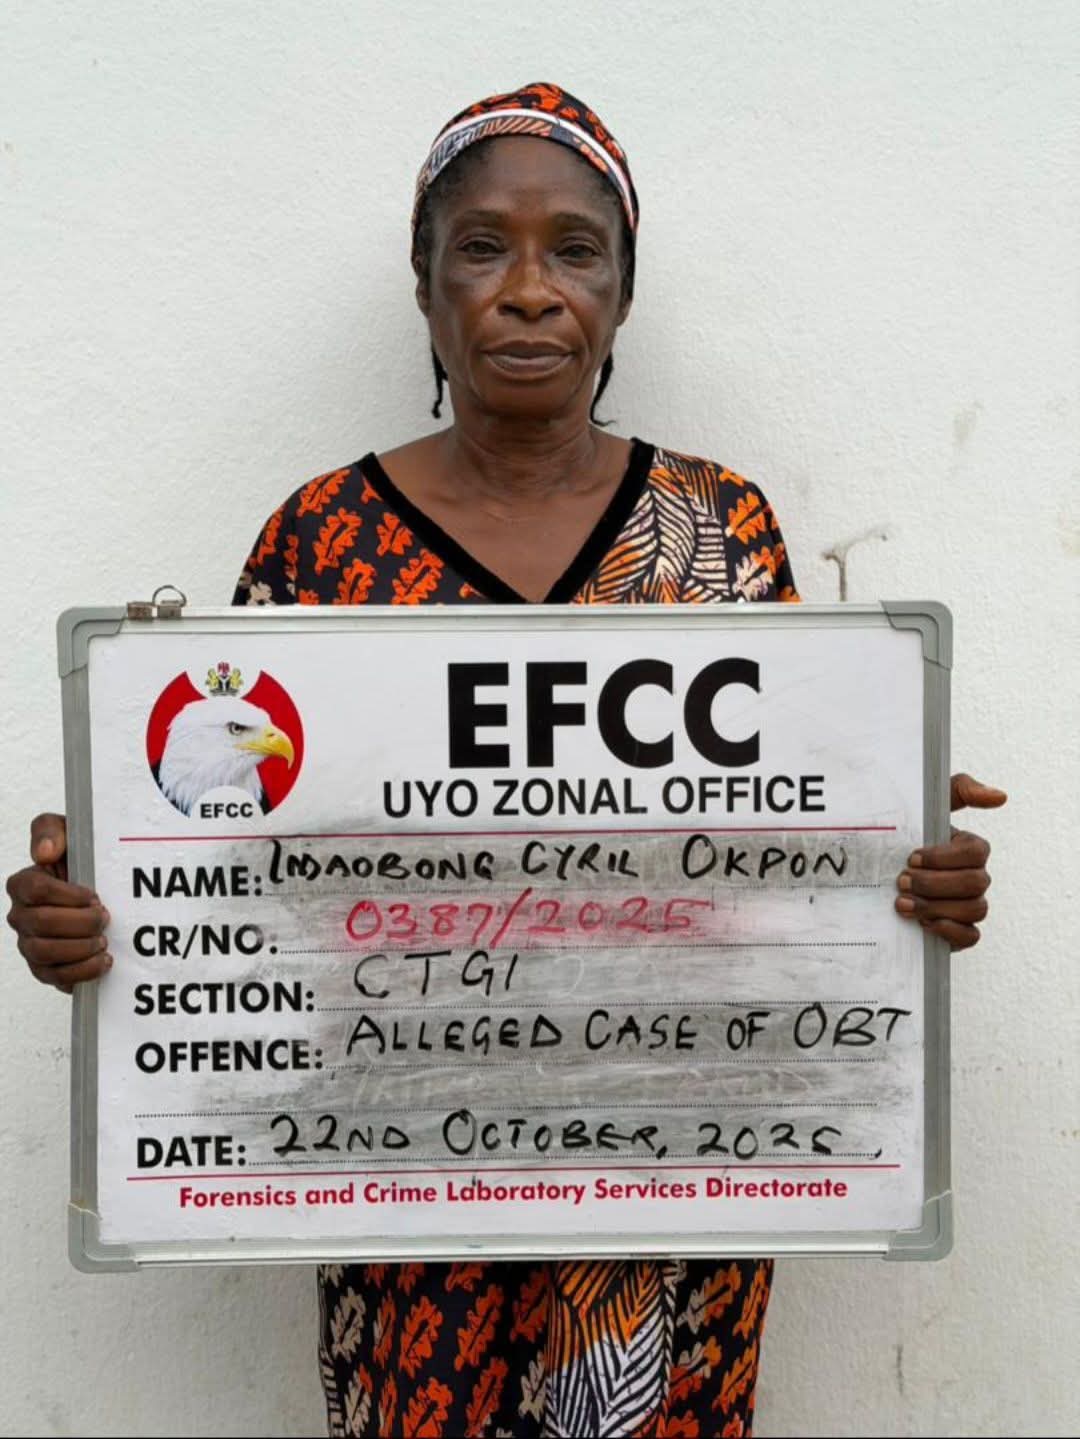 EFCC
EFCC
UYO ZONAL OFFICE
NAME: IMAOBONG CYRIL OKPON
CR/NO. 0387/2025
SECTION: CTGI
OFFENCE: ALLEGED CASE OF OBT
DATE: 22ND OCTOBER, 2025,
Forensics and Crime Laboratory Services Directorate